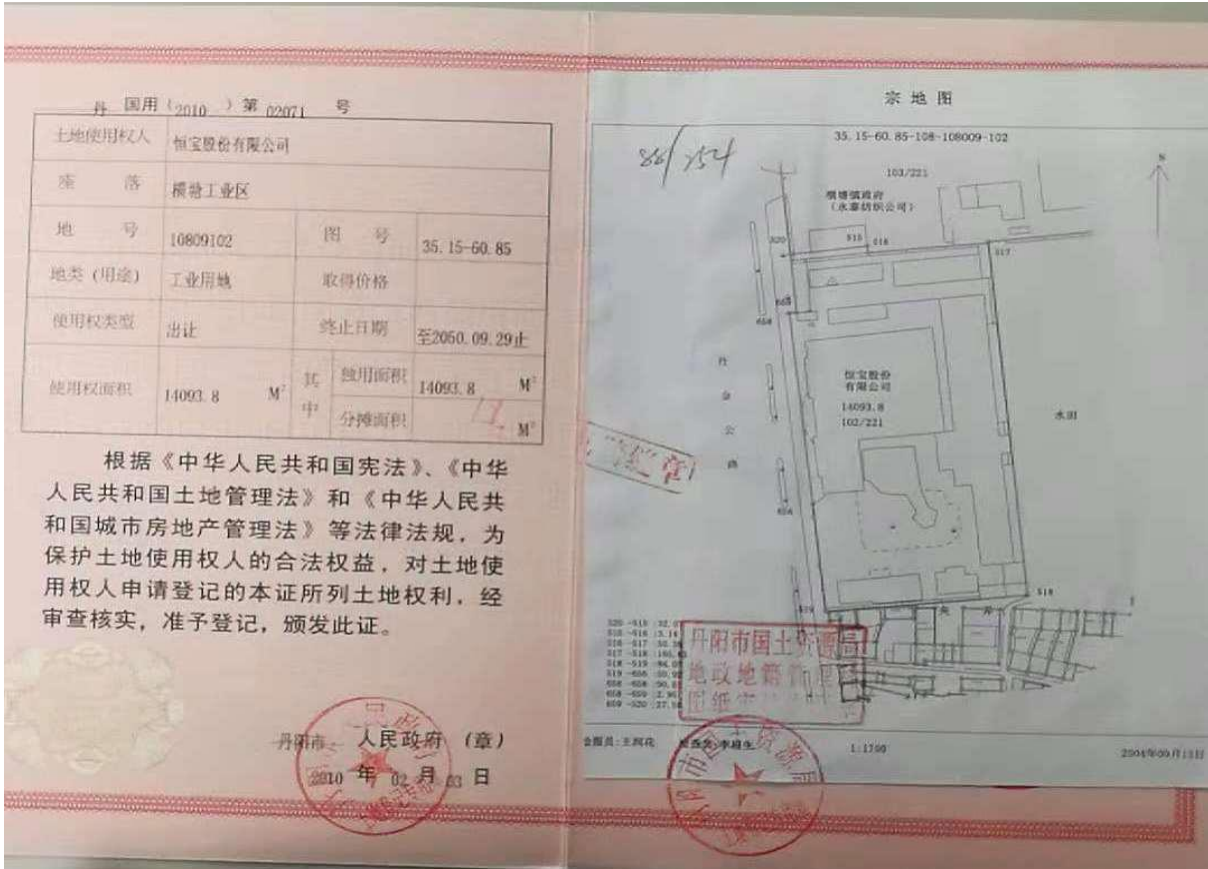 丹 国用（2010）第 02071 号
土地使用权人 恒宝股份有限公司
座落 横塘工业区
地号 10809102 图号 35.15-60.85
地类（用途） 工业用地 取得价格
使用权类型 出让 终止日期 至2050.09.29止
使用权面积 14093.8 M² 其中 独用面积 14093.8 M²
分摊面积 M²
根据《中华人民共和国宪法》、《中华
人民共和国土地管理法》和《中华人民共
和国城市房地产管理法》等法律法规，为
保护土地使用权人的合法权益，对土地使
用权人申请登记的本证所列土地权利，经
审查核实，准予登记，颁发此证。
丹阳市 人民政府（章）
2010 年 02 月 03 日
宗地图
35.15-60.85-108-108009-102
88/254
103/221
横塘镇政府
N
520
515
516
517
658
丹
金
公
路
恒宝股份
有限公司
14093.8
102/221
水田
518
519
丹阳市国土资源局
1:1700
2004年09月15日